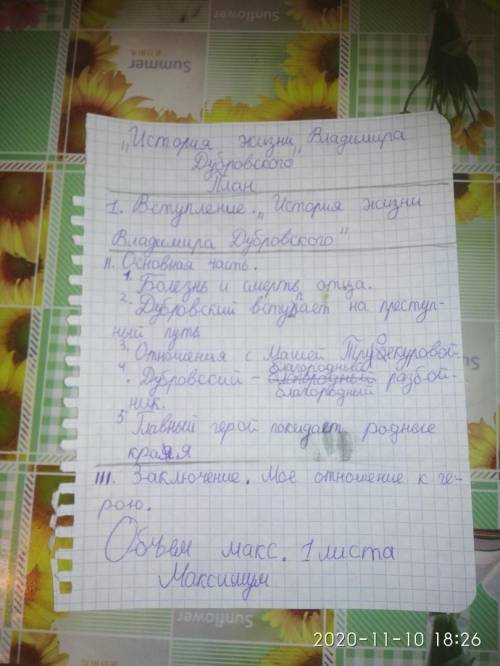 Sunflower
Summer
„История жизни Владимира
Дубровского"
План
I. Вступление. „История жизни
Владимира Дубровского"
II. Основная часть.
1. Болезнь и смерть отца.
2. Дубровский вступает на преступ-
ный путь
3. Отношения с Машей Троекуровой.
благородный
4. Дубровский - разбой-
благородный
ник.
5. Главный герой покидает родные
края
III. Заключение. Моё отношение к ге-
рою.
Объем макс. 1 листа
Максимум
Summer
Sunflower
2020-11-10 18:26